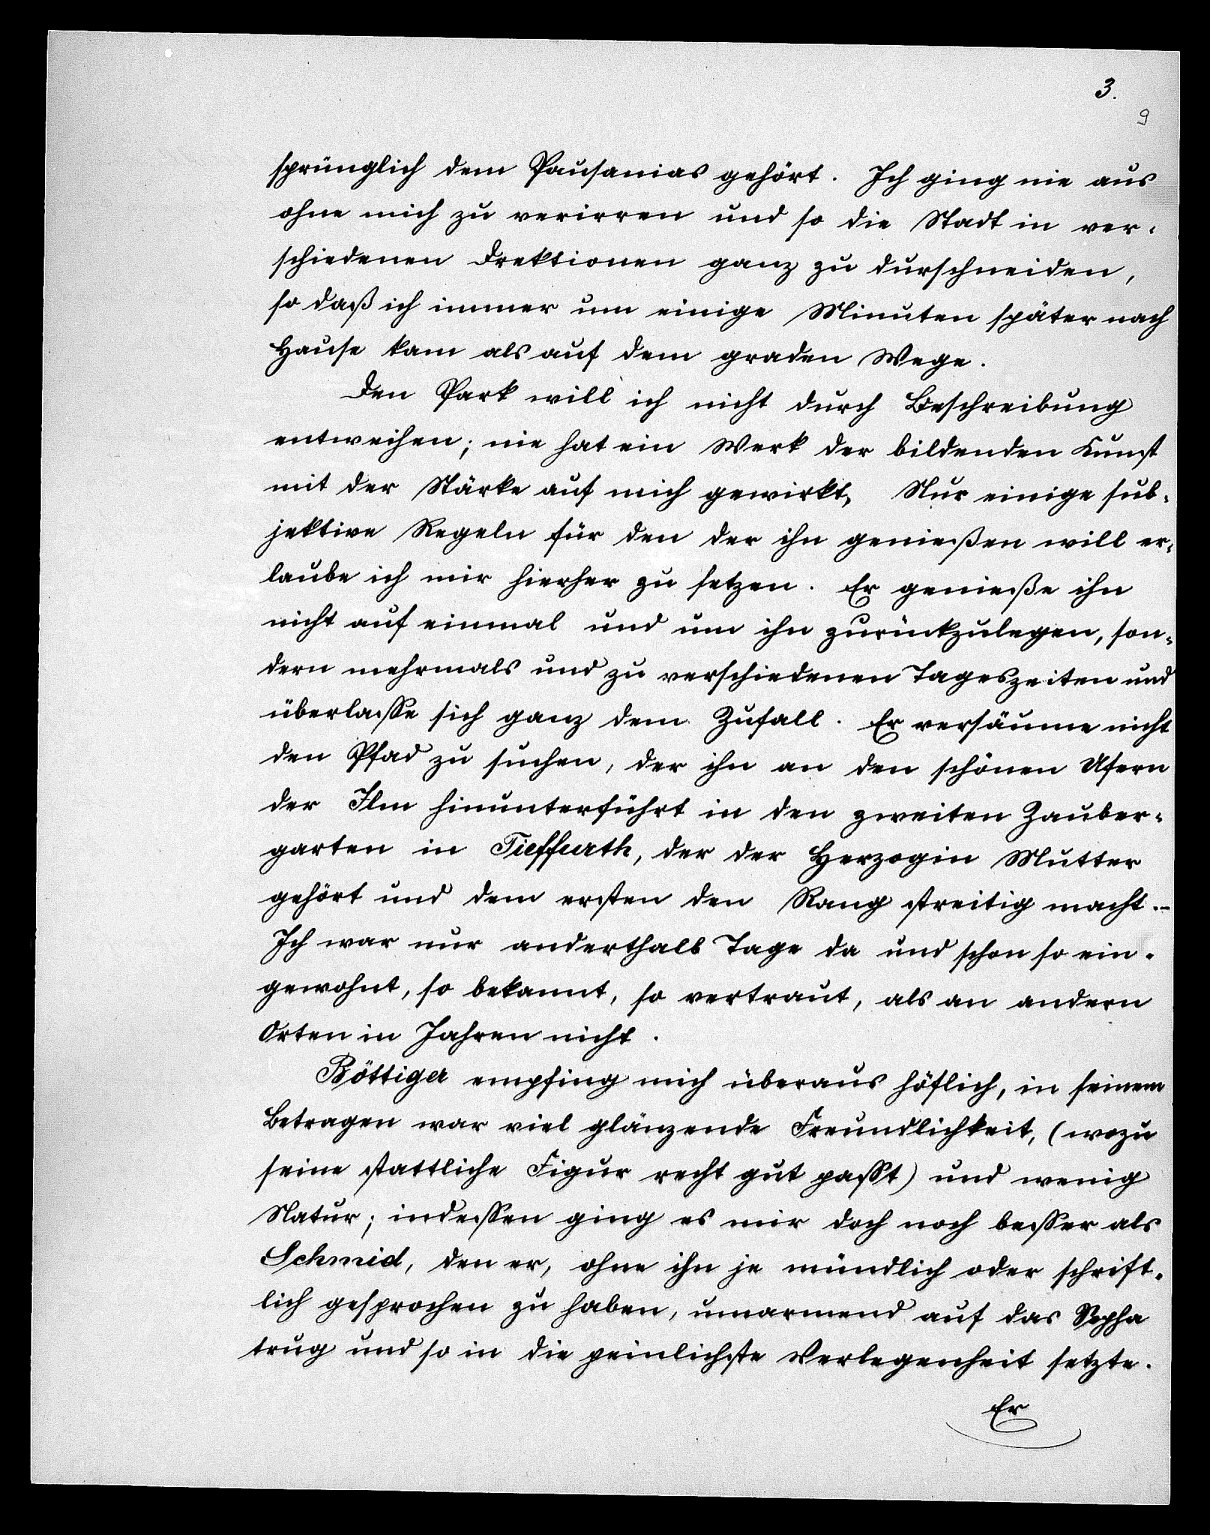 3.
9
sprünglich dem Pausanias gehört. Ich ging nie aus
ohne mich zu verirren und so die Stadt in ver-
schiedenen Drektionen ganz zu durschneiden,
so daß ich immer um einige Minuten später nach
Hause kam als auf dem graden Wege.
Den Park will ich nicht durch Beschreibung
entweihen; nie hat ein Werk der bildenden Kunst
mit der Stärke auf mich gewirkt, Nur einige sub-
jektive Regeln für den der ihn genießen will er-
laube ich mir hierher zu setzen. Er genieße ihn
nicht auf einmal und um ihn zurückzulegen, son-
dern mehrmals und zu verschiedenen Tageszeiten und
überlasse sich ganz dem Zufall. Er versäume nicht
den Pfad zu suchen, der ihn an den schönen Ufern
der Ilm hinunterführt in den zweiten Zauber-
garten in Tieffurth, der der Herzogin Mutter
gehört und dem ersten den Rang streitig macht.-
Ich war nur anderthalb Tage da und schon so ein-
gewohnt, so bekannt, so vertraut, als an andern
Orten in Jahren nicht.
Böttiger empfing mich überaus höflich, in seinem
Betragen war viel glänzende Freundlichkeit, (wozu
seine stattliche Figur recht gut passt) und wenig
Natur; indessen ging es mir doch noch besser als
Schmid, den er, ohne ihn je mündlich oder schrift-
lich gesprochen zu haben, umarmend auf das Sopha
trug und so in die peinlichste Verlegenheit setzte.
Er